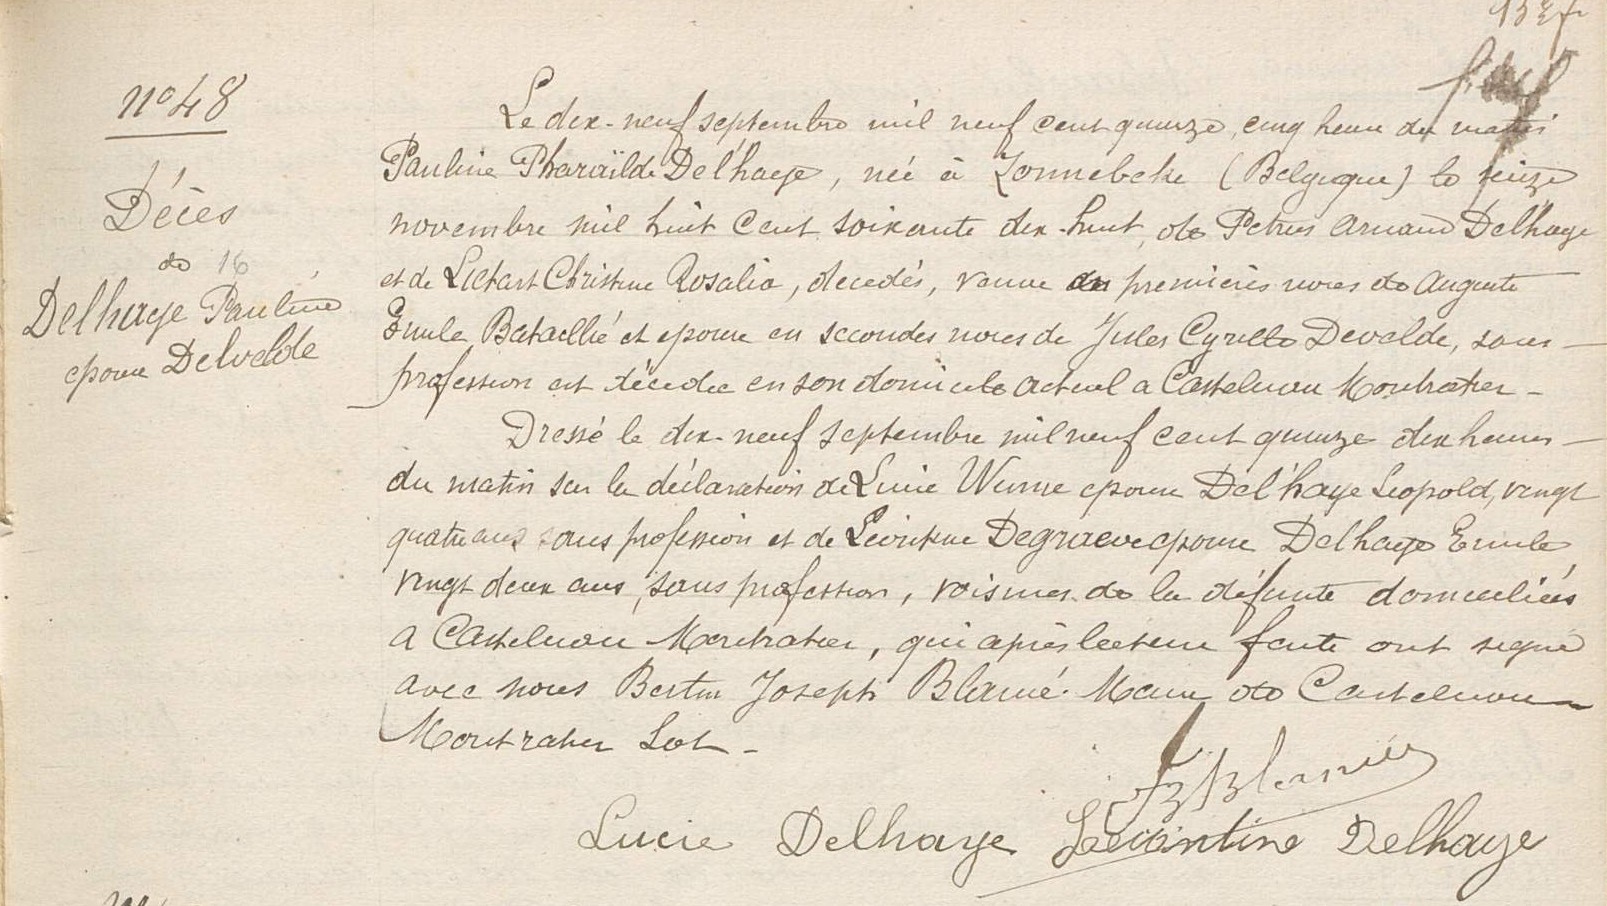 n° 48
Décès
de 16
Delhaye Pauline
epouse Delvelde
Le dix-neuf septembre mil neuf cent quinze, cinq heures du matin
Pauline Pharaïlde Del'haye, née à Zonnebeke (Belgique) le seize
novembre mil huit cent soixante dix-huit, de Petrus Armand Delhaye
et de Lietart Christine Rosalie, decedés, veuve en premières noces de Auguste
Emile Bataillié et epouse en secondes noces de Jules Cyrille Devolde, sans
profession est décédée en son domicile actuel a Castelnau Montratier -
Dressé le dix-neuf septembre mil neuf cent quinze dix heures
du matin sur la déclaration de Lucie epouse Del'haye Leopold, vingt
quatre ans sans profession et de Léontine Degraeve epouse Delhaye Emile
vingt deux ans, sans profession, voisines de la défunte domiciliées
a Castelnau Montratier, qui après lecture faite ont signé
avec nous Bertin Joseph Blanié Maire de Castelnau
Montratier Lot -
JBBlanié
Lucie Delhaye Leontine Delhaye